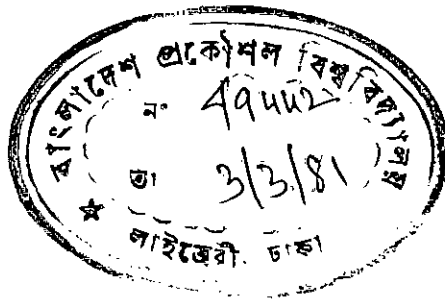 বাংলাদেশ প্রকৌশল বিশ্ববিদ্যালয়
নং 49442
তা 3/3/81
লাইব্রেরী. ঢাকা